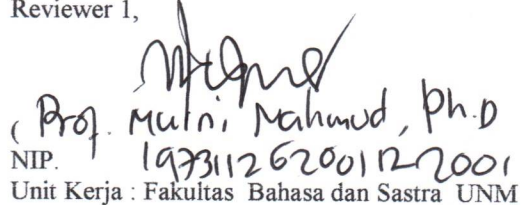 Reviewer 1,
( Prof. Murni Mahmud, Ph.D
NIP. 197311262001122001
Unit Kerja : Fakultas Bahasa dan Sastra UNM